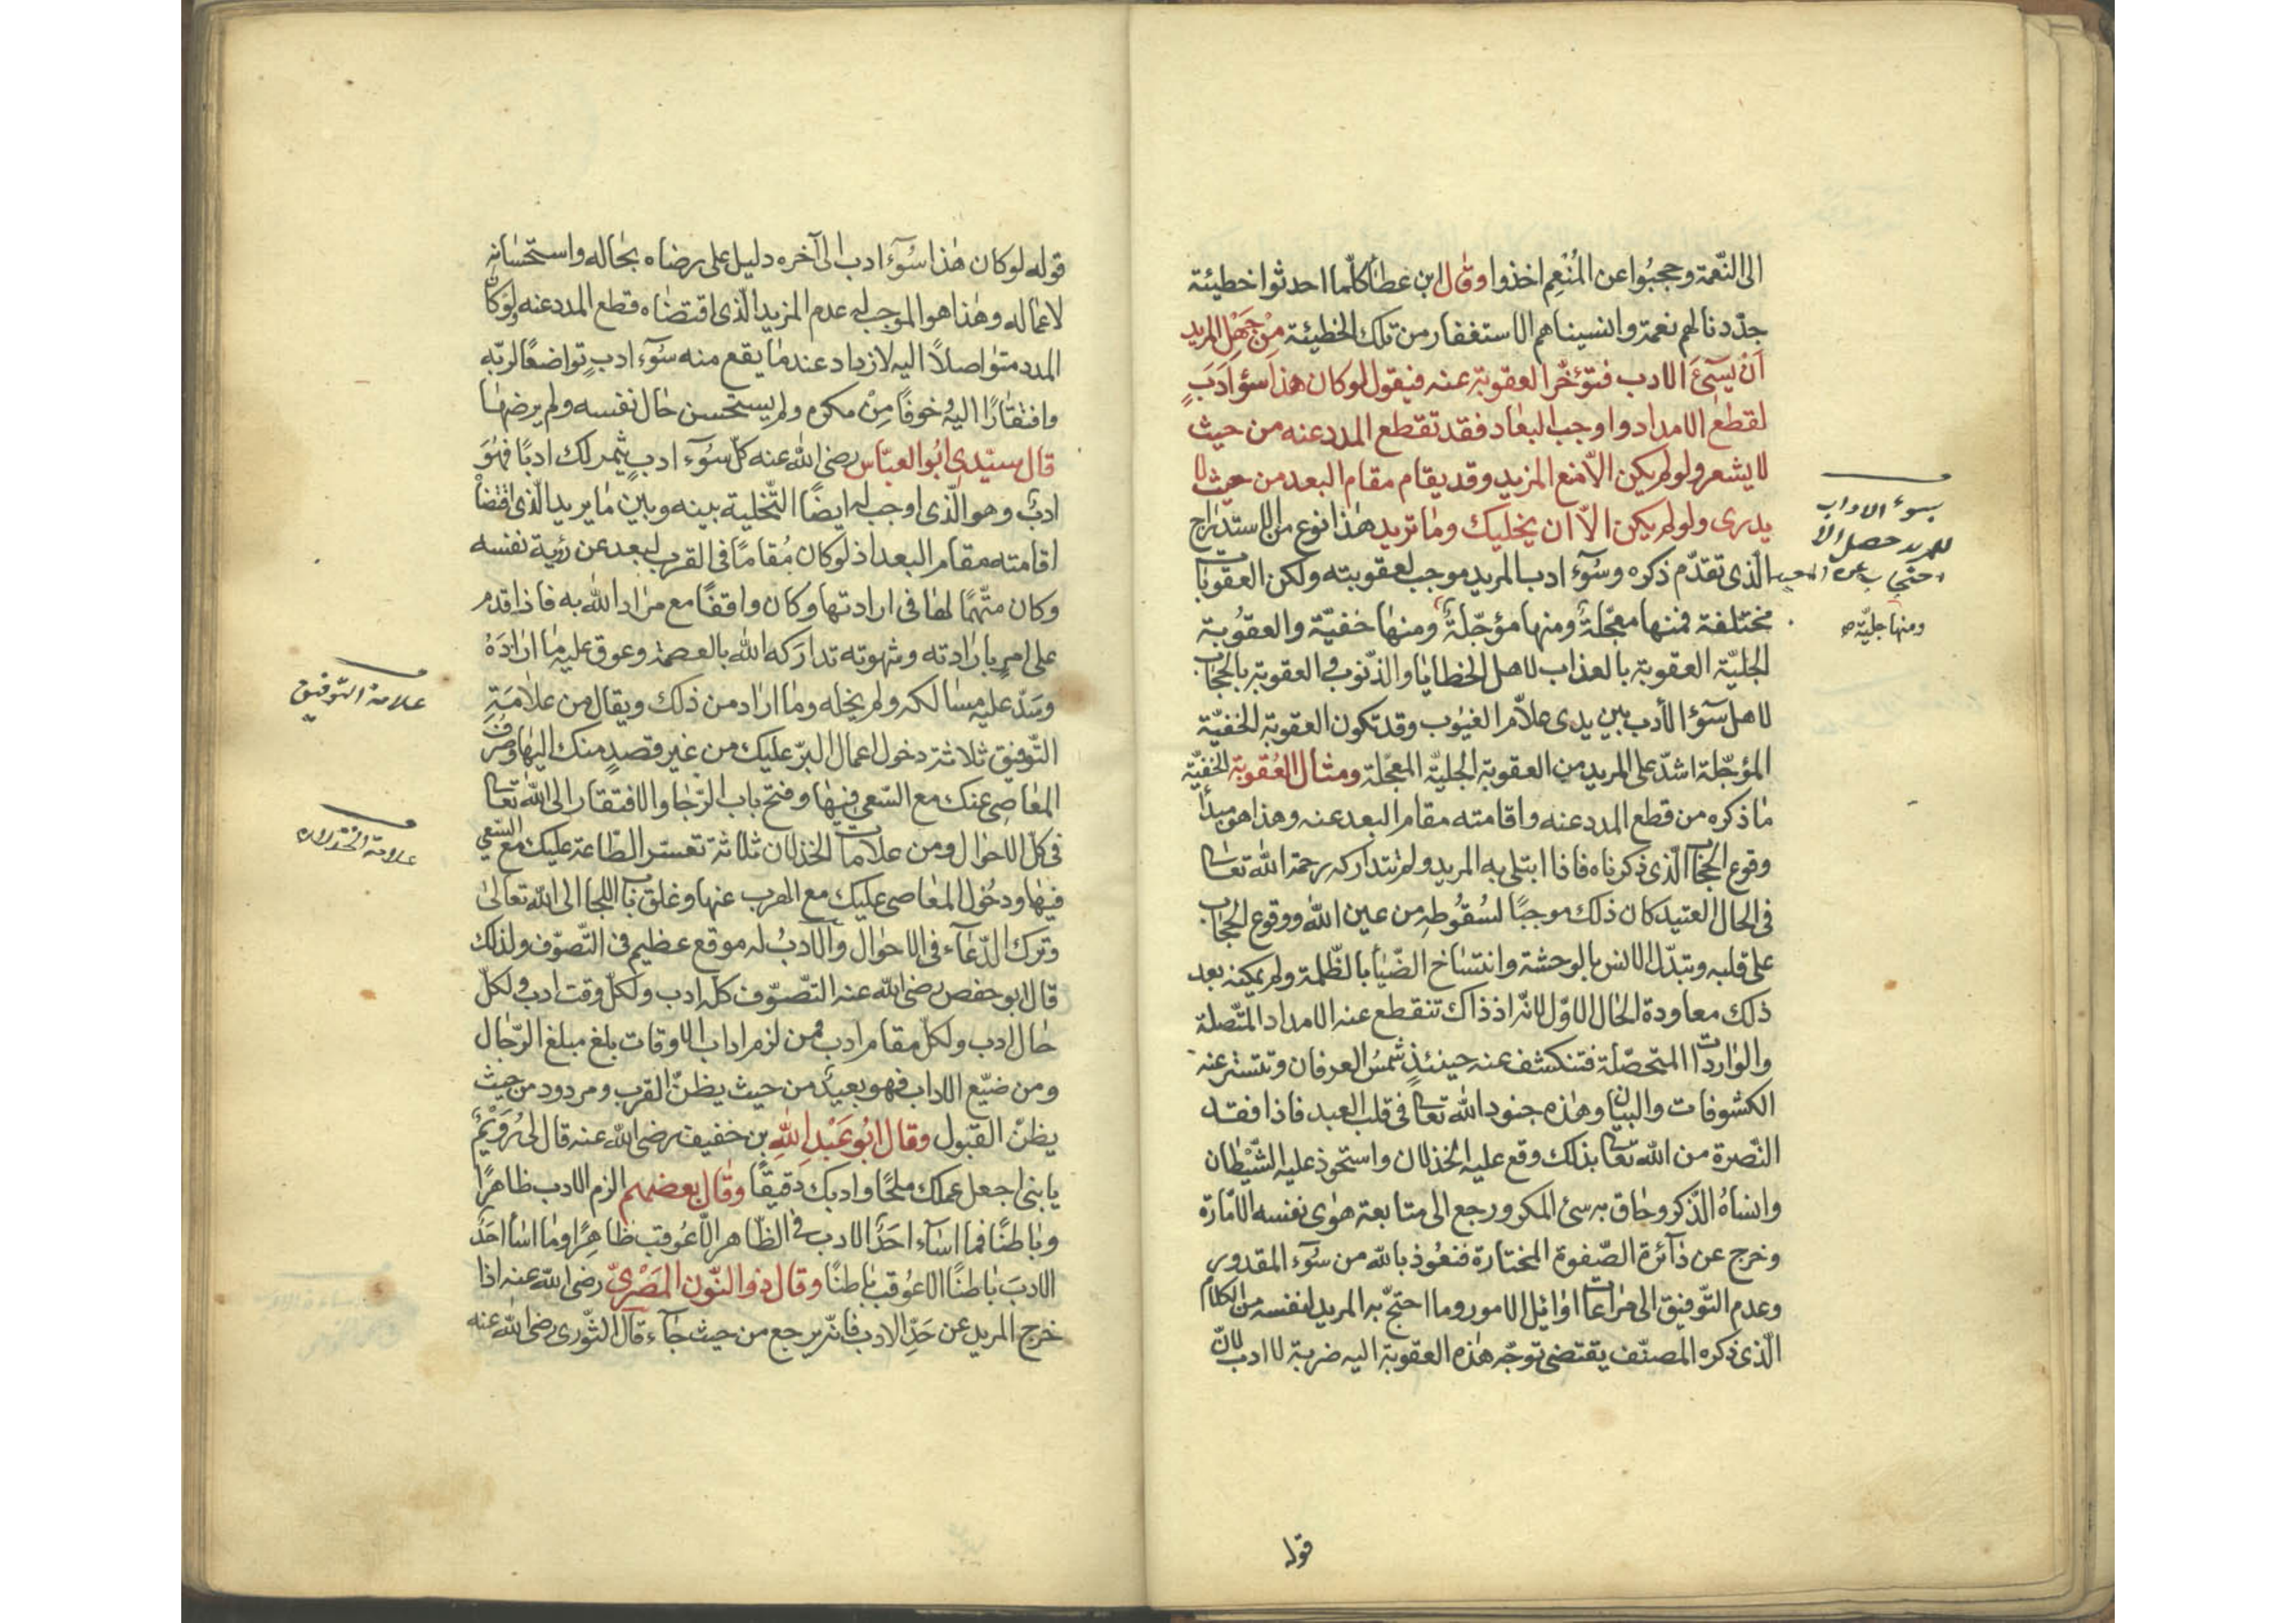 الى النّعمة وحجبُوا عن المُنْعِم اخذوا وقال ابن عطا كلّما احدثوا خطيئة
جدّدنا لهم نعمة وانسيناهم الاستغفار من تلك الخطيئة مِنْ جَهْلِ المريد
اَنْ يسيئَ الادب فتؤخّر العقوبة عنه فيقول لوكان هذا سؤ اَدَبٍ
لقطع الامداد واوجب البعاد فقد تقطع المدد عنه من حيث
لا يشعر ولولم يكن الاّ منع المزيد وقد يقام مقام البعد من حيث لا
يدرى ولولم يكن الاّ ان يخليك وما تريد هذا نوع من الاستدراج
الّذى تقدّم ذكره وسُوٓء ادب المريد موجب لعقوبته ولكن العقوبات
مختلفة فمنها معجّلةٌ ومنها مؤجّلةٌ ومنها خفيّة والعقوُبة
الجليّة العقوبة بالعذاب لاهل الخطايا والذّنوب والعقوبة بالحجاب
لاهل سوٓء الأدب بين يدى علاّم الغيُوب وقد تكون العقوبة الخفيّة
المؤجّلة اشدّ على المريد من العقوبة الجليّة المعجّلة ومثال العُقوبة الخفيّة
ما ذكره من قطع المدد عنه واقامته مقام البعد عنه وهذا هو مبدأ
وقوع الحجاب الّذى ذكرناه فاذا ابتلى به المريد ولم تتداركه رحمة الله تعالى
فى الحال العتيد كان ذلك موجبًا لسُقوُطه من عين الله ووقوع الحجاب
على قلبه وتبدّل الانس بالوحشة وانتساخ الضّيا بالظّلمة ولم يمكنه بعد
ذلك معاودة الحال الاوّل لانّه اذ ذاك تنقطع عنه الامداد المتّصلة
والواردات المتحصّلة فتنكشف عنه حينئذٍ شمسُ العرفان وتتستر عنه
الكشوفات والبيان وهذه جنود الله تعالى فى قلب العبد فاذا فقد
النّصرة من الله تعالى بذلك وقع عليه الخذلان واستحوذ عليه الشّيْطان
وانساهُ الذّكر وحاق به سئ المكر ورجع الى متابعة هوٰى نفسه الامّارة
وخرج عن دآئرة الصّفوة المختارة فنعُوذ بالله من سُوٓء المقدور
وعدم التّوفيق الى مراعات اوائل الامور وما احتجّ به المريد لنفسه من الكلام
الّذى ذكره المصنّف يقتضى توجّه هذه العقوبة اليه ضربة لا ادب لانّ
سوء الاداب
للمريد حصل الا
ومنها جليّة صح
قوله
قوله لوكان هٰذا سُوٓء ادب الى آخره دليل على رضاه بحاله واستحسانه
لاعماله وهٰذا هو الموجب له عدم المزيد الّذى اقتضاه قطع المدد عنه ولوكان
المدد متواصلاً اليه لازداد عند ما يقع منه سُوٓء ادبٍ تواضعًا لربّه
وافتقارًا اليه وخوفًا مِنْ مكره ولم يستحسن حال نفسه ولم يرضها
قال سيّدى ابُو العبّاس رضى الله عنه كلّ سُوٓء ادبٍ يثمر لك ادبًا فهُوَ
ادبٌ وهو الّذى اوجب له ايضًا التّخلية بينه وبين ما يريد الّذى اقتضا
اقامته مقام البعد اذ لوكان مُقامًا فى القرب لبعد عن رؤية نفسه
وكان متّهمًا لها فى ارادتها وكان واقفًا مع مراد الله به فاذا قدم
على امرٍ بارادته وشهوته تداركه الله بالعصمة وعوق عليه ما ارادَهُ
وسَدّ عليه مسالكه ولم يخله وما اراد من ذلك ويقال من علامَةِ
التّوفيق ثلاثة دخول اعمال البرّ عليك من غير قصدٍ منك اليها وصرف
المعاصِى عنك مع السّعى فيها وفتح باب الرّجا والافتقار الى الله تعالى
فى كلّ الاحوال ومن علامات الخذلان ثلاثة تعسّر الطّاعة عليك مع السّعى
فيها ودخُول المعاصى عليك مع الهرب عنها وغلق باب اللجا الى الله تعالىٰ
وترك الدّعآء فى الاحوال والادبُ له موقع عظيم فى التّصوّف ولذلك
قال ابو حفص رضى الله عنه التّصوّف كلّه ادب ولكلّ وقت ادب ولكلّ
حال ادب ولكلّ مقام ادب فمن لزم اداب الاوقات بلغ مبلغ الرّجال
ومن ضيّع الاداب فهو بعيدٌ من حيث يظنّ القرب ومردود من حيث
يظنّ القبول وقال ابُو عَبْدِ اللهِ بن خفيف رضى الله عنه قال لى رُوَيْمٌ
يابنى اجعل عملك ملحًا وادبك دَقيقًا وقال بعضهم الزم الادب ظاهرًا
وباطنًا فما اسآء احَدٌ الادب فى الظّاهر الّا عُوقب ظاهِرًا وما اسأ احَدٌ
الادبَ باطنًا الا عُوقب باطنًا وقال ذو النّون المصْرىّ رضى الله عنه اذا
خرج المريد عن حَدّ الادب فانّه يرجع من حيث جآء قال الثّورى رضى الله عنه
علامة التوفيق
علامة الخذلان